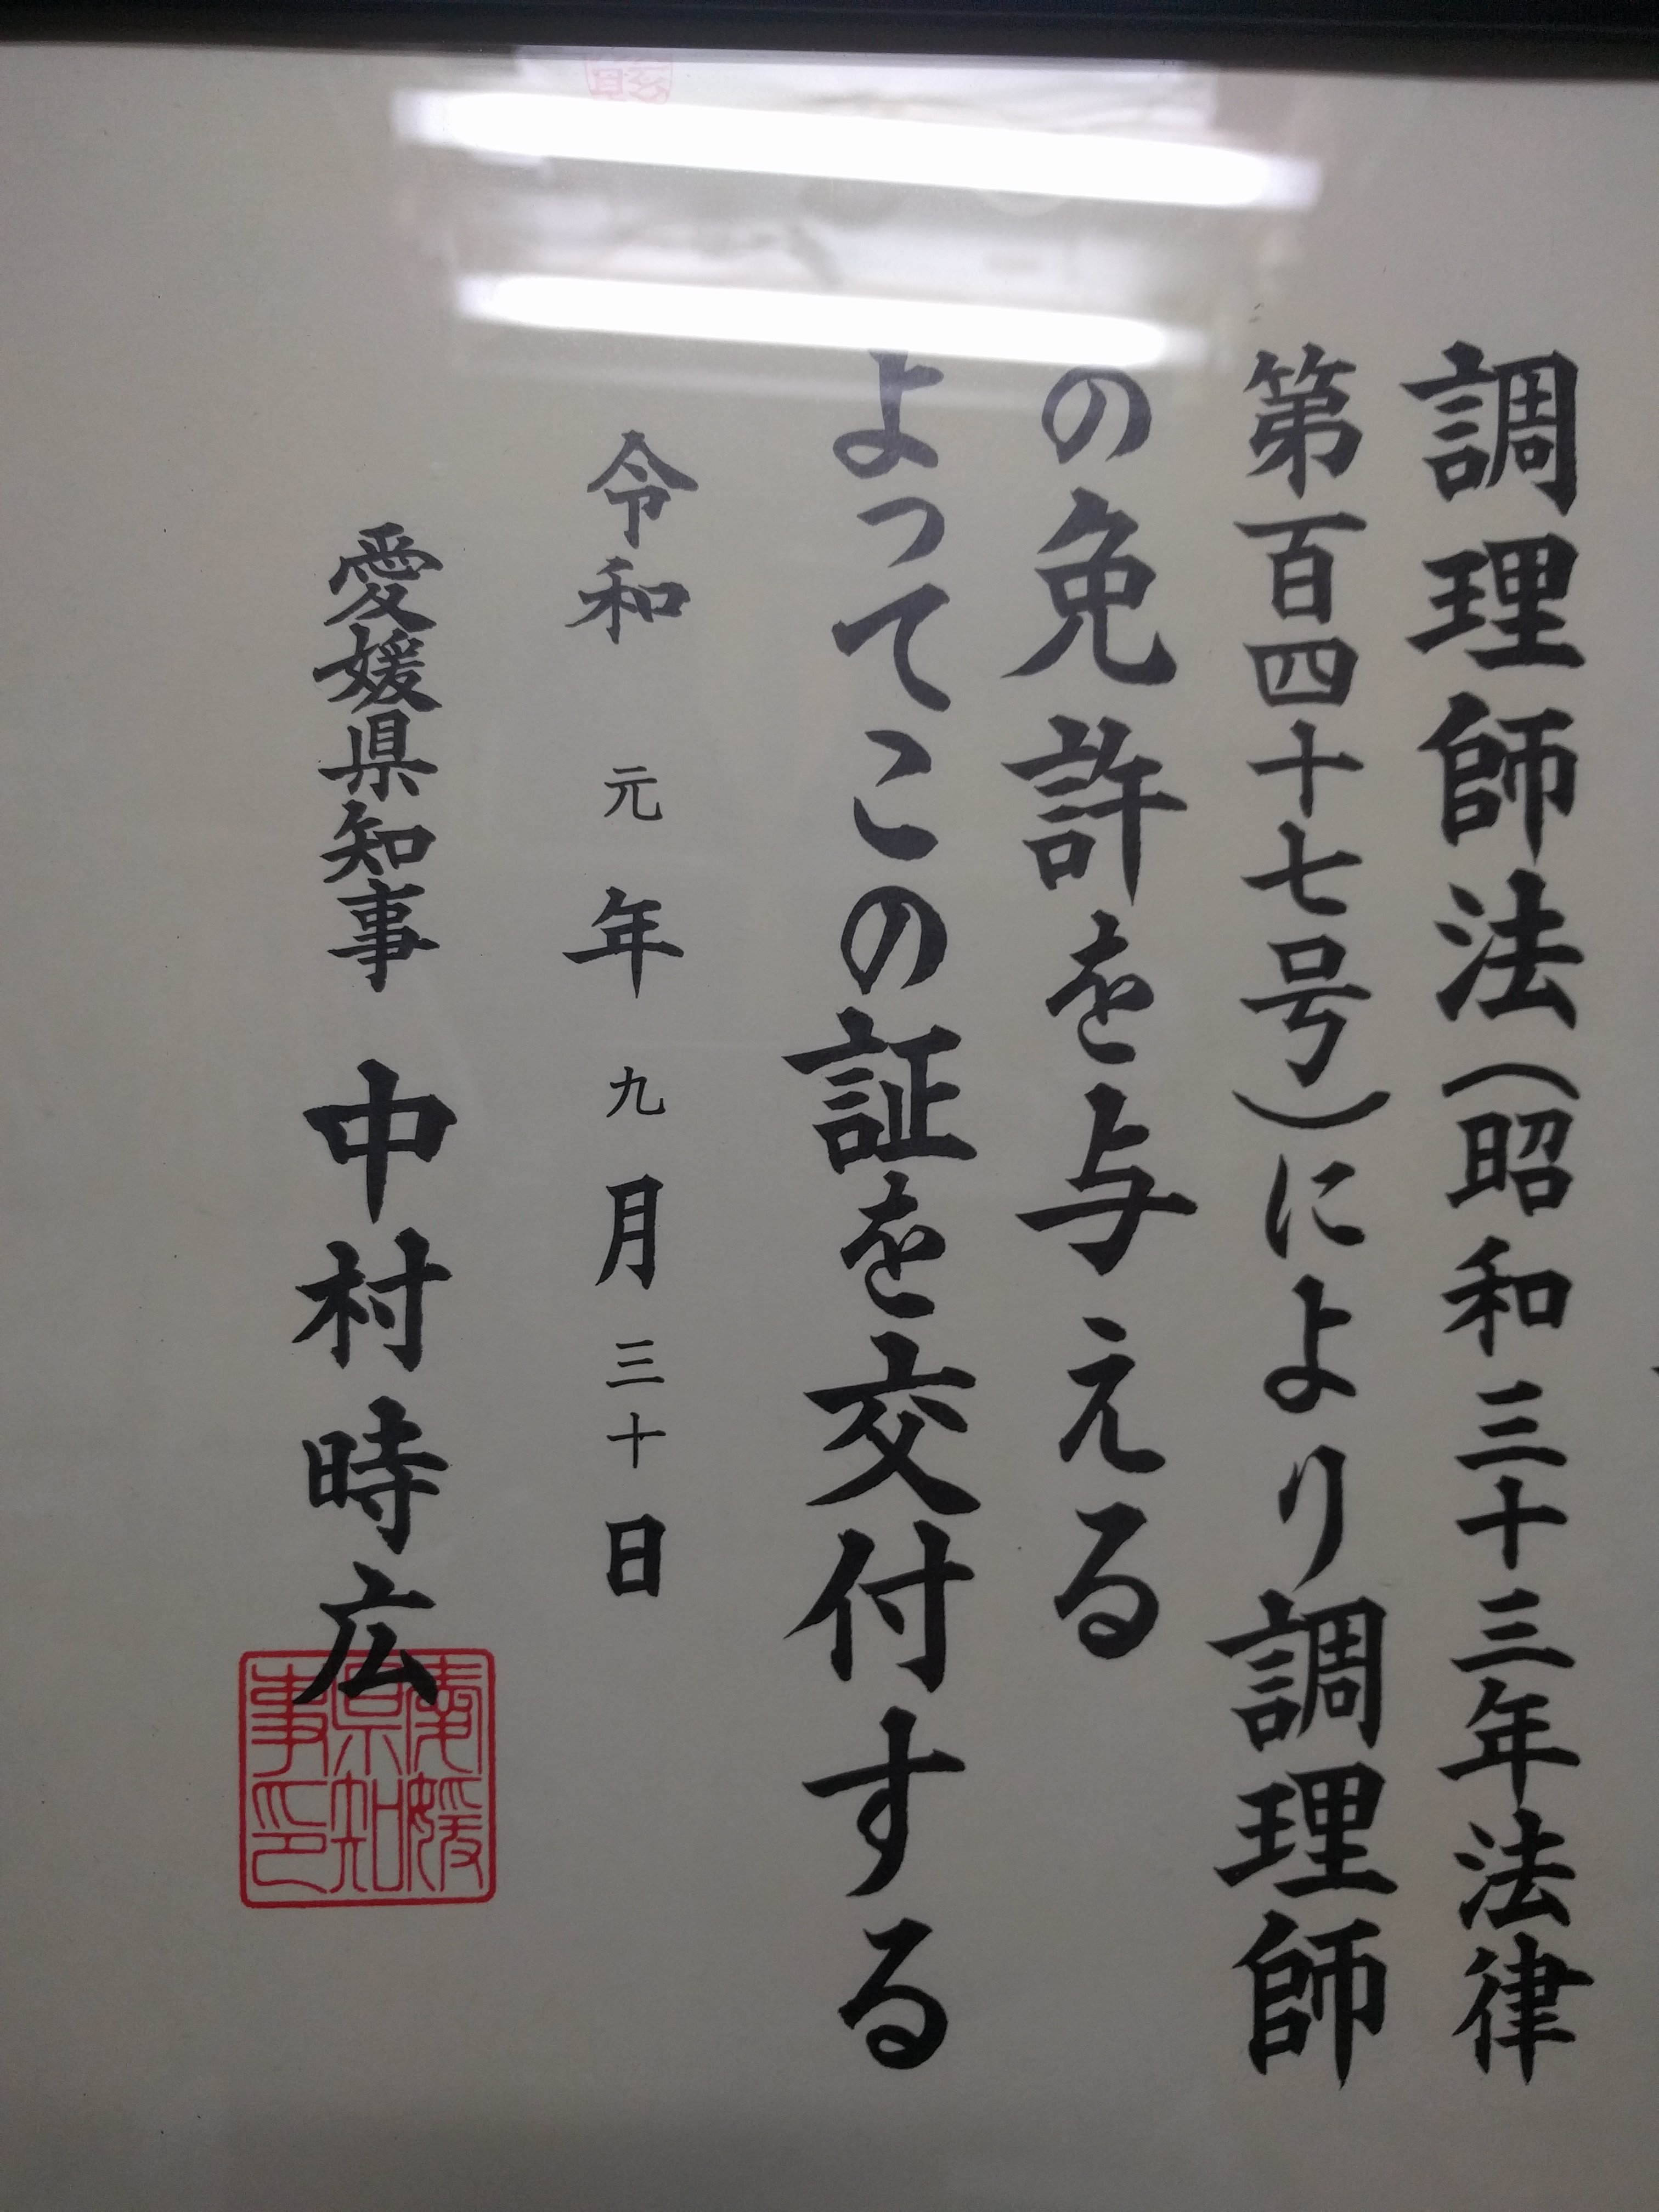 調理師法(昭和三十三年法律
第百四十七号)により調理師
の免許を与える
よってこの証を交付する
令和元年九月三十日
愛媛県知事 中村時広
愛媛県知事印